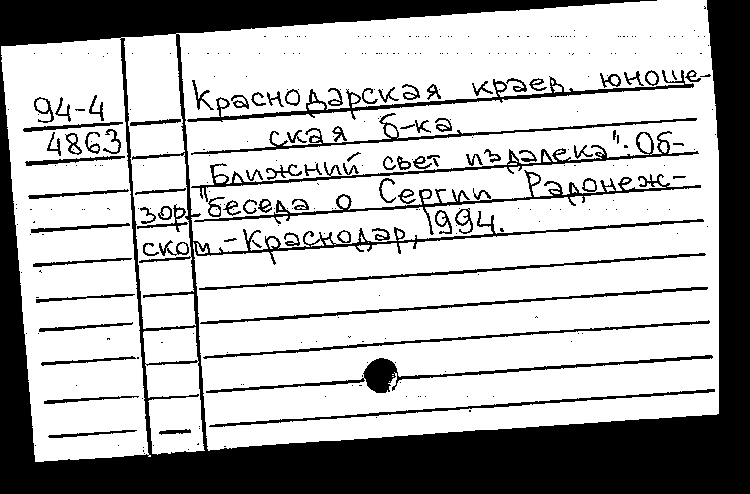 94-4
4863
Краснодарская краев. юноше-
ская б-ка.
"Ближний свет издалека": Об-
зор-беседа о Сергии Радонеж-
ском.-Краснодар, 1994.